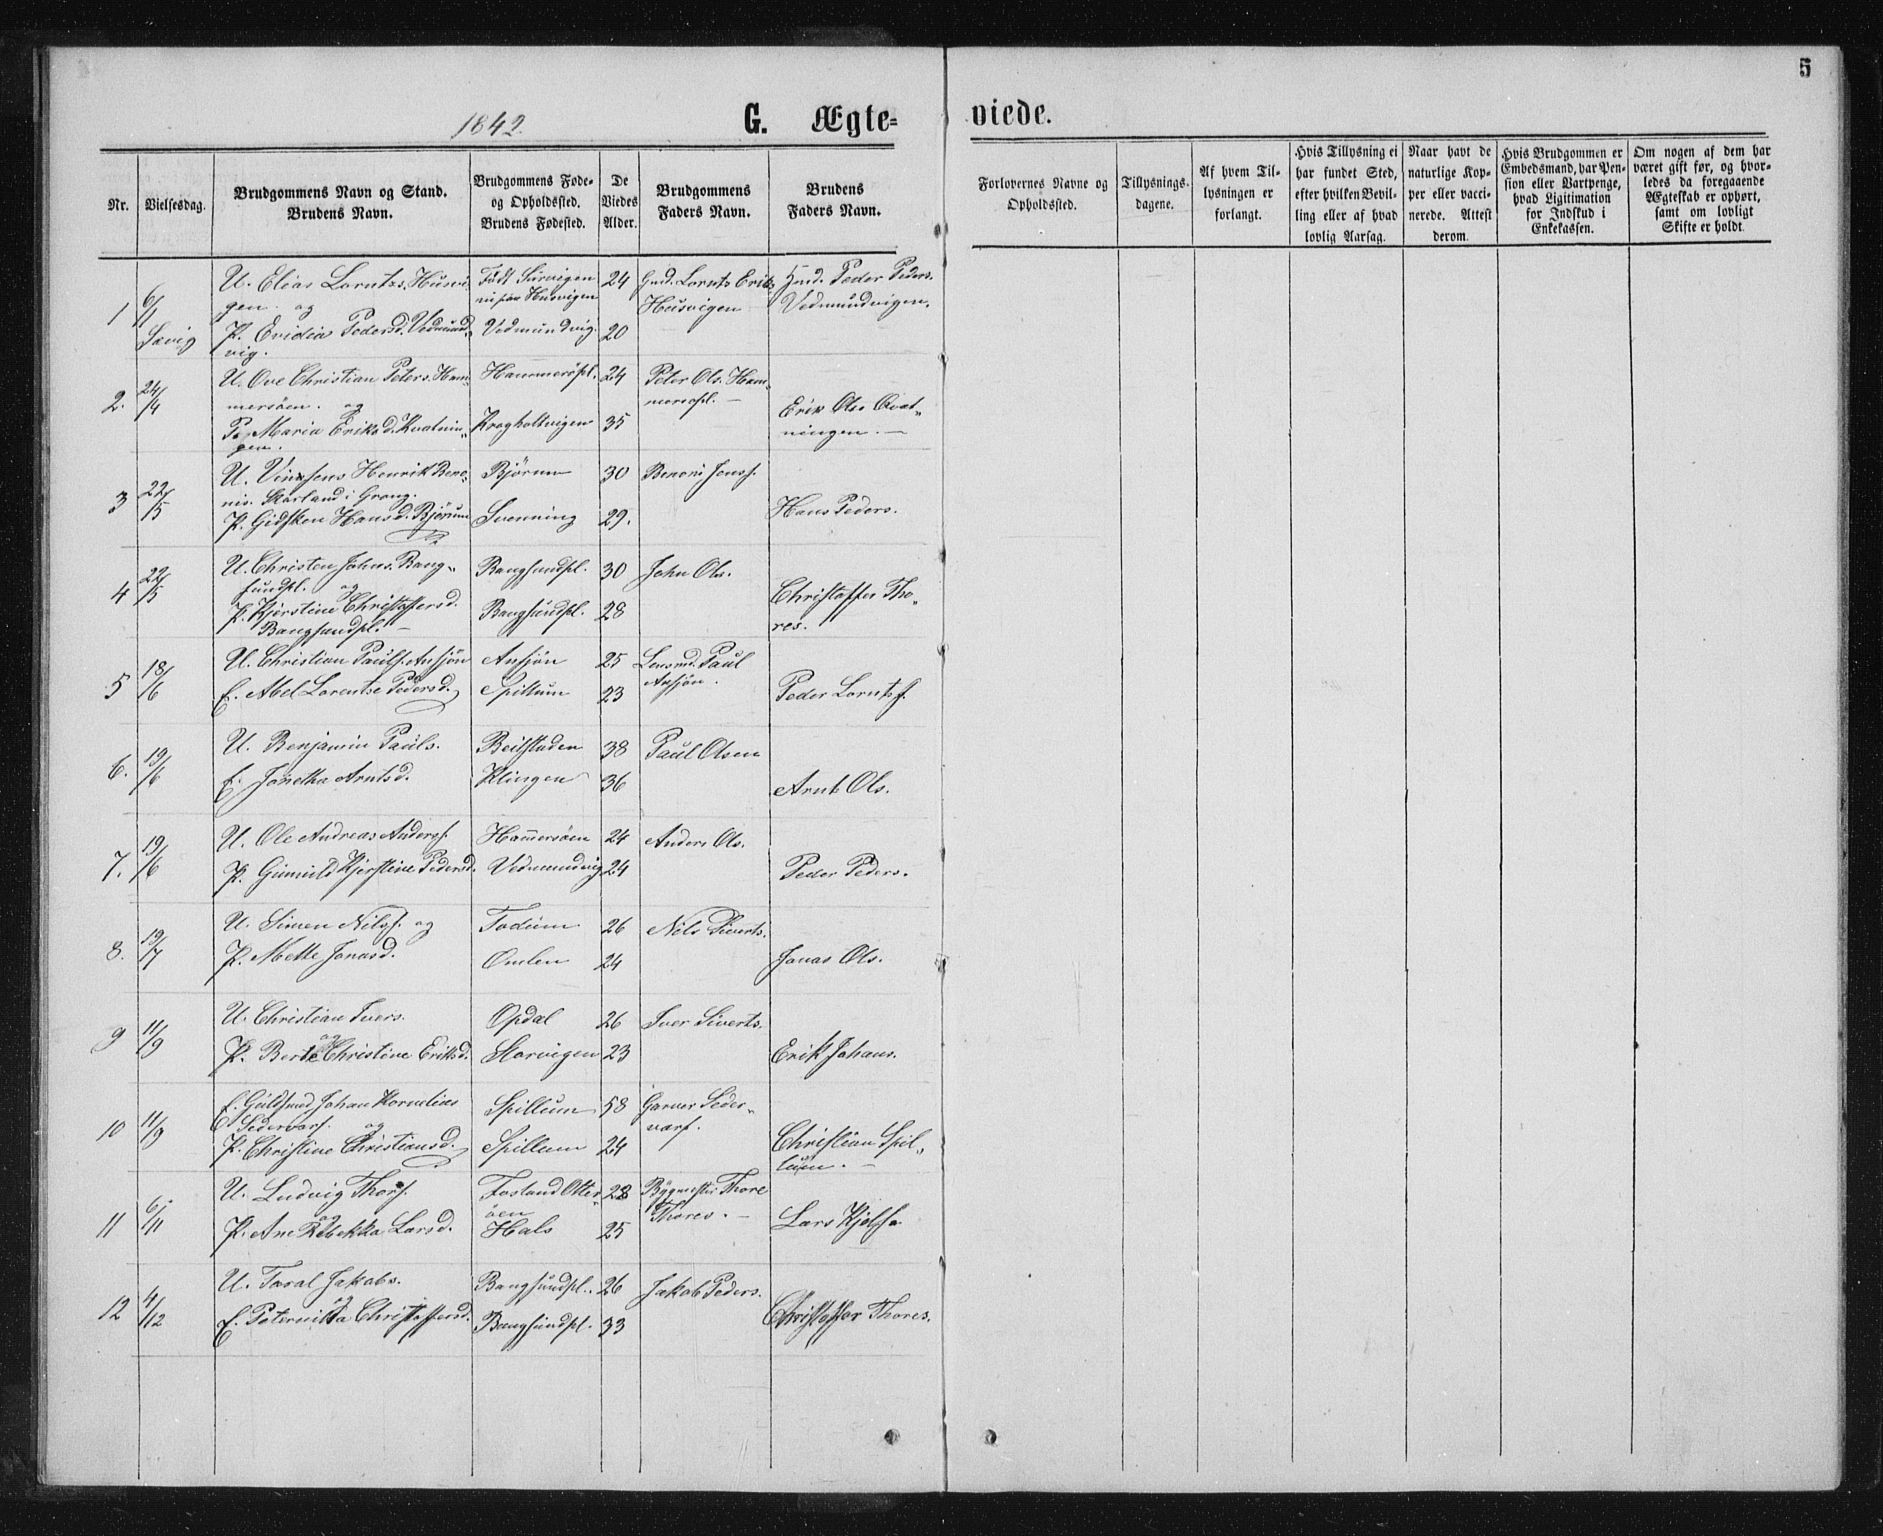 5
1842.
G. Ægte=
viede.
Nr.
Vielsesdag.
Brudgommens Navn og Stand.
Brudens Navn.
Brudgommens Føde-
og Opholdssted.
Brudens Fødested.
De
Viedes
Alder.
Brudgommens
Faders Navn.
Brudens
Faders Navn.
Forlovernes Navne og
Opholdssted.
Tillysnings-
dagene.
Af hvem Til-
lysningen er
forlangt.
Hvis Tillysning ei
har fundet Sted,
efter hvilken Bevil-
ling eller af hvad
lovlig Aarsag.
Naar havt de
naturlige Kop-
per eller vacci-
nerede. Attest
derom.
Hvis Brudgommen er
Embedsmand, har Pen-
sion eller Vartpenge,
hvad Ligitimation
for Indskud i
Enkekassen.
Om nogen af dem har
været gift før, og hvor-
ledes da foregaaende
Ægteskab er ophørt,
samt om lovligt
Skifte er holdt.
1
6/1
Sævig
U. Elias Lorntzs. Husvi-
gen. og
P. Evidia Pedersd. Vedmund-
vig.
Født Survigen
Husvigen
Vedmundvig.
24
20
Gmd. Lornts Eriks.
Husvigen
Gmd. Peder Peders.
Vedmundvigen.
2.
24/4
U. Ove Christian Peters. Ham-
mersøen. og
P. Maria Eriksd. Kvatnin-
gen.
Hammersøpl.
Kragholtvigen
24
35
Peter Ols. Ham-
mersøpl. —
Erik Ols. Qvat-
ningen. —
3
22/5
U. Vinsens Henrik Beno-
nis. Skarland i Grong.
P. Gidsken Hansd. Bjørum
Bjørum
Svenning
30
29.
Benoni Jonss.
Hans Peders.
4
22/5
U. Christen Johns. Bang-
sundpl. og
P. Kjerstine Christoffersd.
Bangsundpl. —
Bangsundpl.
Bangsundpl.
30
28
John Ols.
Christoffer Tho-
res.
5
18/6
U. Christian Pauls. Ansjøn
E. Abel Lorentse Pedersd.
Ansjøn
Spillum
25
23
Lensmd. Paul
Ansjøn.
Peder Lorntss.
6.
19/6
U. Benjamin Pauls.
E. Jonetha Arntsd.
Beitstaden
Klingen
38
36
Paul Olsen
Arnt Ols.
7.
19/6
U. Ole Andreas Anderss.
P. Gunnild Kjerstine Pedersd.
Hammersøen
Vedmundvig
24
24
Anders Ols.
Peder Peders.
8.
19/7
U. Simen Nilss. og
P. Mette Jonasd.
Fodum
Omlen
26
24
Nils Siverts.
Jonas Ols.
9
11/9
U. Christian Ivers.
og
P. Berte Christine Eriksd.
Opdal
Storvigen
26
23
Iver Siverts.
Erik Johans.
10
11/9
E. Guldsmed Johan Kornelius
Sedervarf. og
P. Christine Christiansd.
Spillum
Spillum
58
24
Garver Seder-
varf.
Christian Spil-
lum. —
11
6/11
U. Ludvig Thorss.
og
P. Ane Rebekka Larsd.
Fosland Otter-
øen
Hals
28
25
Bygmester Thore
Thores. —
Lars Kjels.
12
4/12
U. Taral Jakobs.
og
E. Peternilla Christoffersd.
Bangsundpl.
Bangsundpl.
26
33
Jakob Peders.
Christoffer Thores.